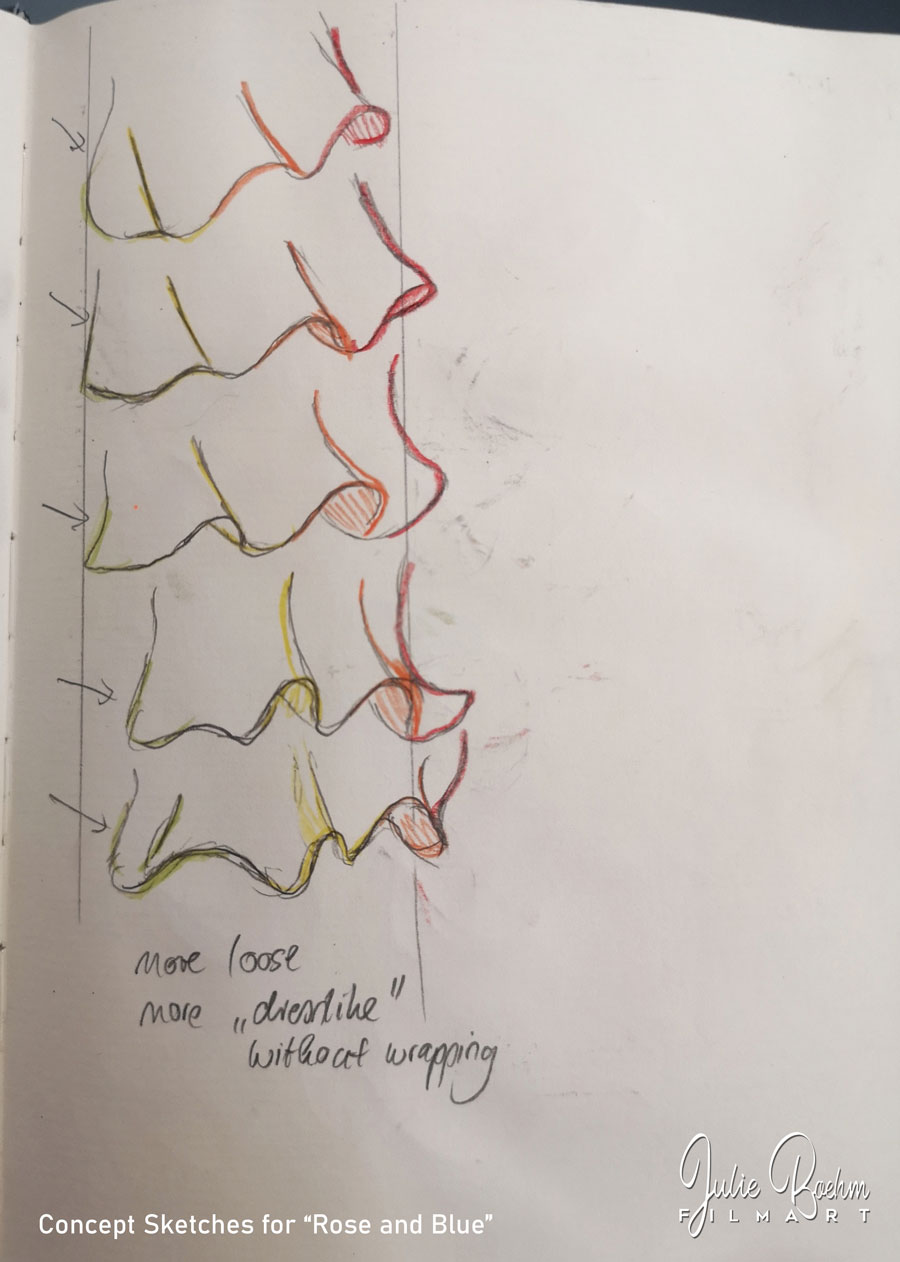 more loose
more „dresslike”
without wrapping
Concept Sketches for “Rose and Blue”
Julie Boehm
FILMART